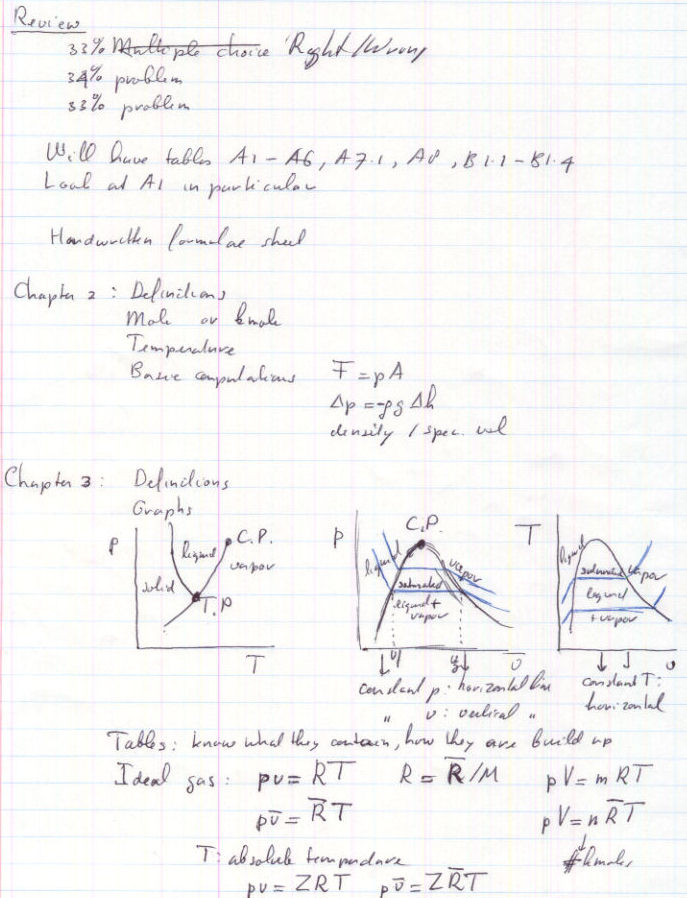 Review
33% Multiple choice Right/Wrong
34% problem
33% problem
Will have tables A1-A6, A7.1, A8, B1.1-B1.4
Look at A1 in particular
Handwritten formulae sheet
Chapter 2: Definitions
Mole or kmole
Temperature
Basic computations F=pA
Δp=-ρgΔh
density / spec. vol
Chapter 3: Definitions
Graphs
P solid liquid C.P. vapor T.P T
P C.P. liquid vapor saturated liquid + vapor v
T liquid saturated vapor liquid + vapor v
constant p: horizontal line
" v: vertical "
constant T: horizontal
Tables: know what they contain, how they are build up
Ideal gas: pv=RT R=R̅/M pV=mRT
pv̅=R̅T pV=nR̅T
#kmoles
T: absolute temperature
pv=ZRT pv̅=ZR̅T